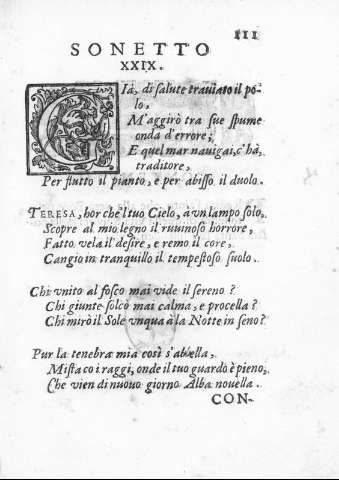 III
SONETTO
XXIX.
GIà, di salute traviato il po-
lo,
M'aggirò tra sue spume
onda d'errore;
E quel mar navigai, c'hà,
traditore,
Per flutto il pianto, e per abisso il duolo.
TERESA, hor che'l tuo Cielo, à vn lampo solo,
Scopre al mio legno il ruuinoso horrore,
Fatto vela il desire, e remo il core,
Cangio in tranquillo il tempestoso suolo.
Chi vnito al fosco mai vide il sereno?
Chi giunte solcò mai calma, e procella?
Chi mirò il Sole vnqua à la Notte in seno?
Pur la tenebra mia così s'abbella,
Mista co i raggi, onde il tuo guardo è pieno,
Che vien di nuouo giorno Alba nouella.
CON-